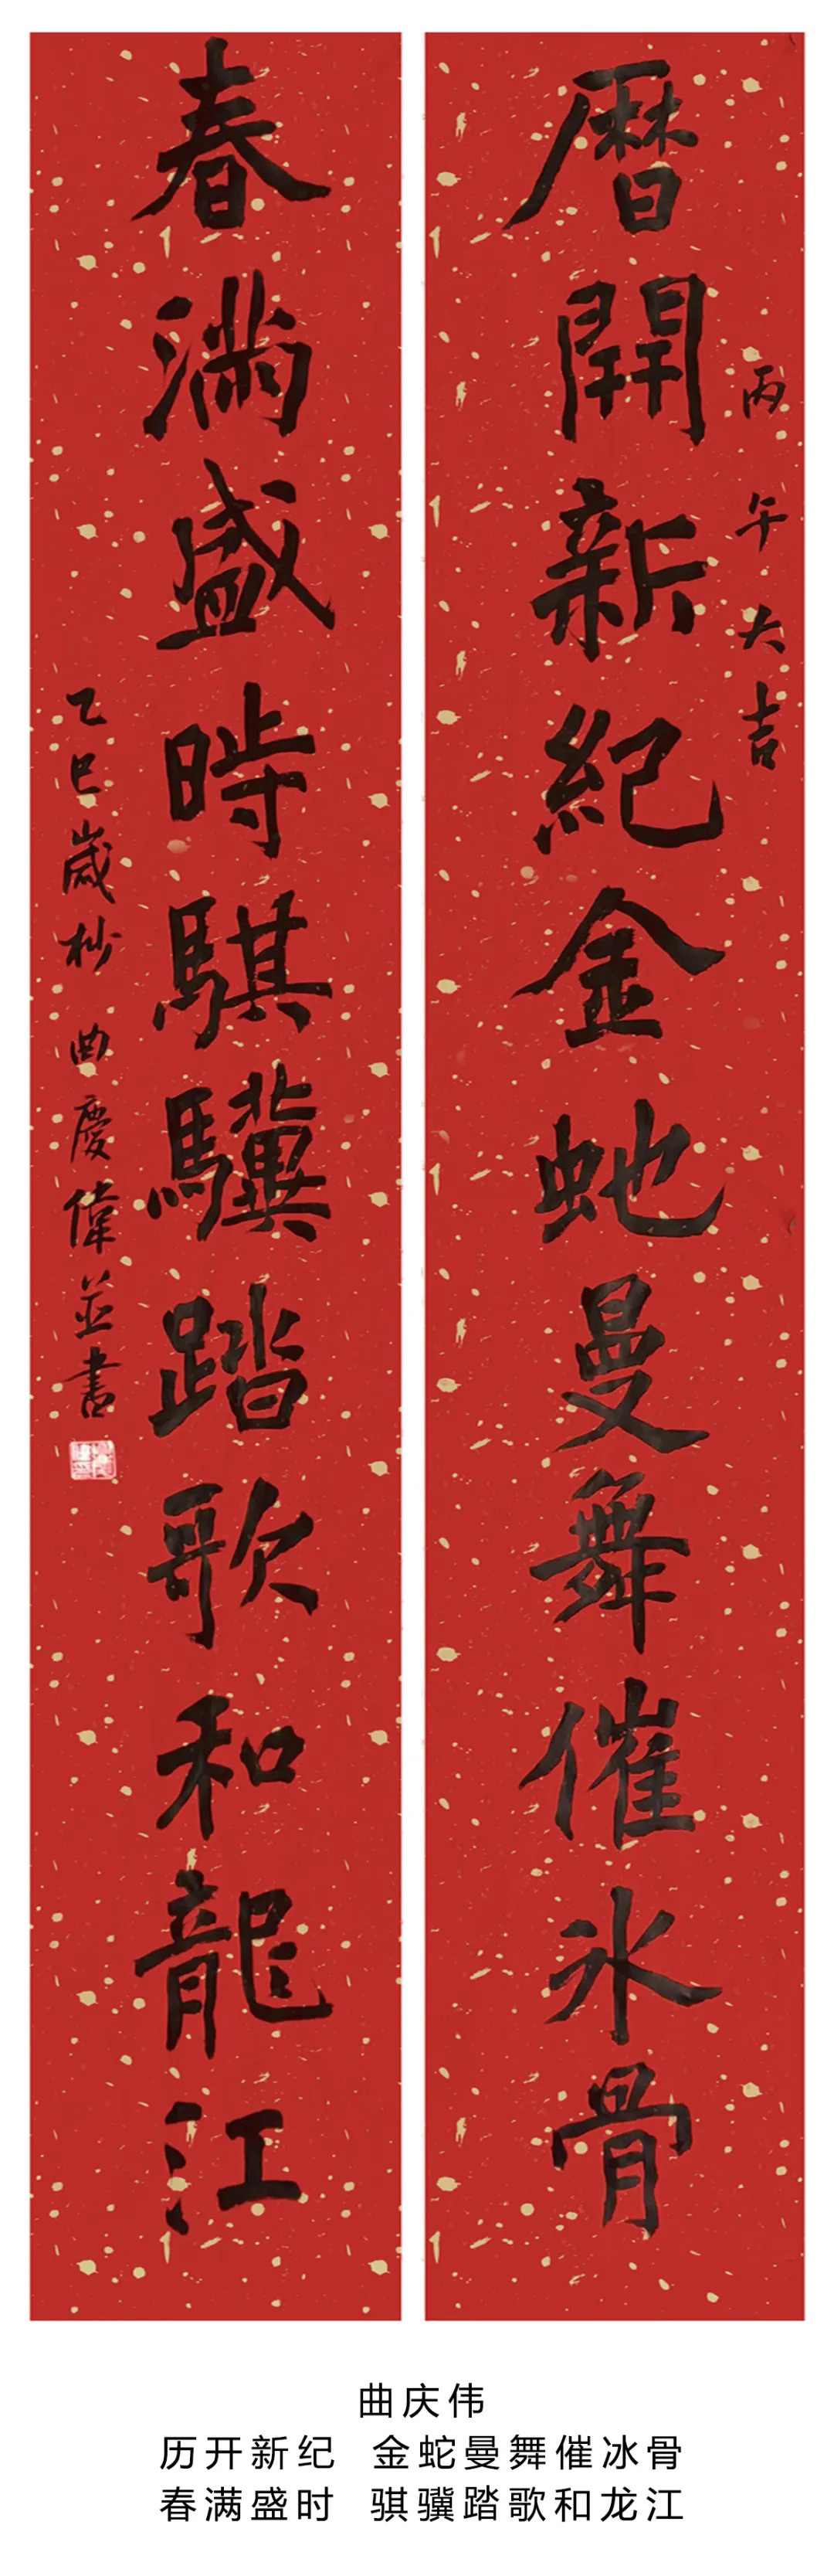 丙午大吉
暦開新紀金虵曼舞催氷骨
春满盛時騏驥踏歌和龍江
乙巳嵗杪曲慶偉並書
曲庆伟
历开新纪 金蛇曼舞催冰骨
春满盛时 骐骥踏歌和龙江